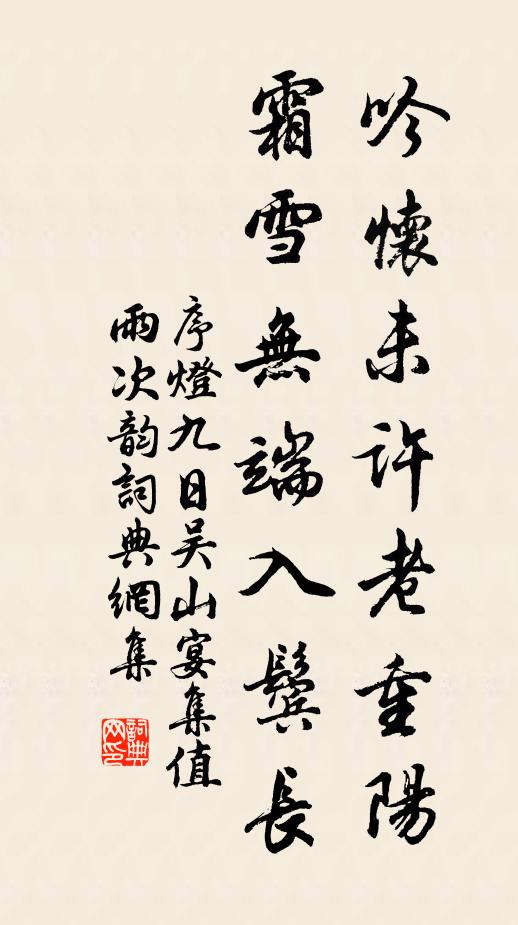 吟懷未許老重陽
霜雪無端入鬢長
序燈九日吴山宴集值
雨次韵詞典網集
詞典網印